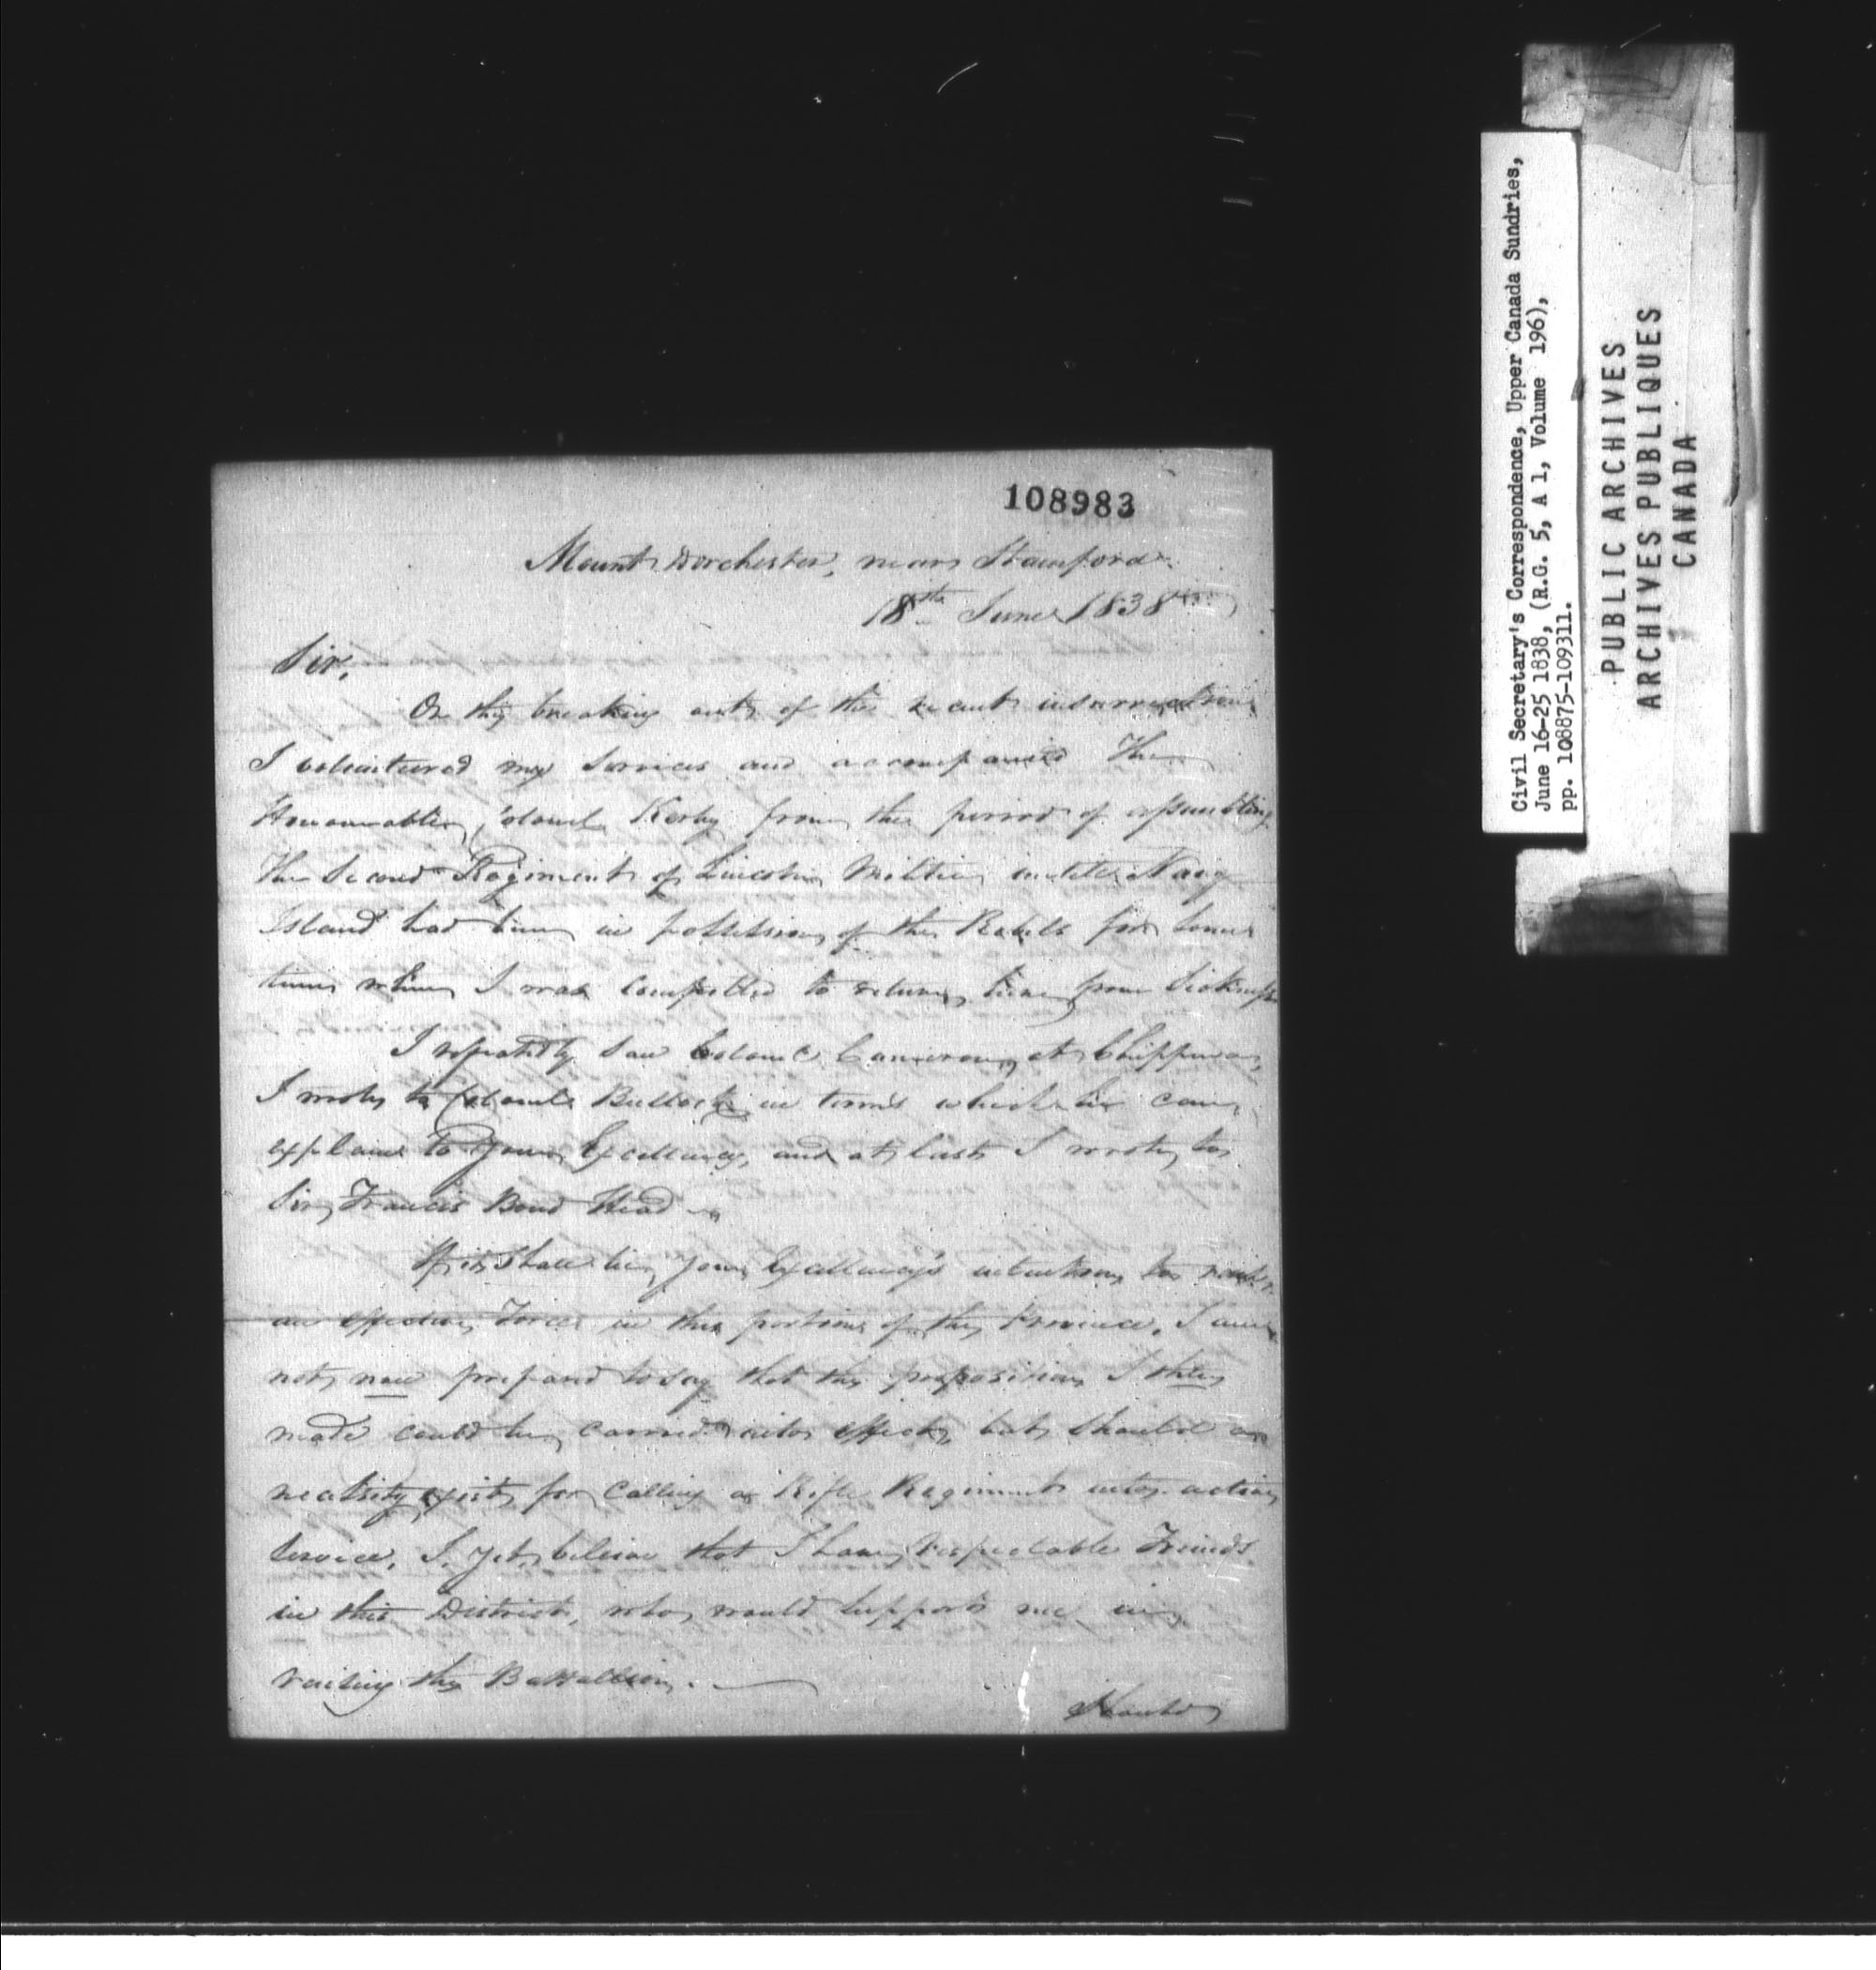 108983
Mount Dorchester, near Stamford
18th June 1838
Sir,
On the breaking out of the recent insurrection
I volunteered my services and accompanied The
Honourable Colonel Kerby from the period of assembling
the Second Regiment of Lincoln Militia until Navy
Island had been in possession of the Rebels for some
time when I was compelled to return home from Sickness
I repeatedly saw Colonel Cameron at Chippawa,
I wrote to Colonel Bullock in terms which he can
explain to Your Excellency, and at last I wrote to
Sir Francis Bond Head
If it shall be your Excellency's intention to
an effective Force in this portion of the Province, I am
not now prepared to say that the proposition I then
made could be carried into effect, but should a
necessity exist for calling a Rifle Regiment into active
Service, I yet believe that I have respectable Friends
in this District, who would support me in
raising the Battalion.
Should
Civil Secretary's Correspondence, Upper Canada Sundries,
June 16-25 1838, (R.G. 5, A 1, Volume 196),
pp. 108875-109311.
PUBLIC ARCHIVES
ARCHIVES PUBLIQUES
CANADA